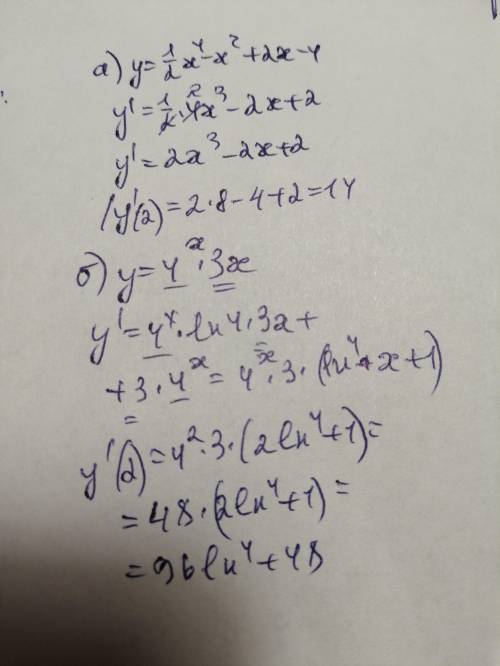 а) y = 1/2 x⁴ - x² + 2x - 4
y' = 1/2 · 4x³ - 2x + 2
y' = 2x³ - 2x + 2
y'(2) = 2·8 - 4 + 2 = 14
б) y = 4ˣ · 3x
y' = 4ˣ · ln 4 · 3x +
+ 3 · 4ˣ = 4ˣ · 3 · (ln 4 · x + 1)
y'(2) = 4² · 3 · (2 ln 4 + 1) =
= 48 · (2 ln 4 + 1) =
= 96 ln 4 + 48